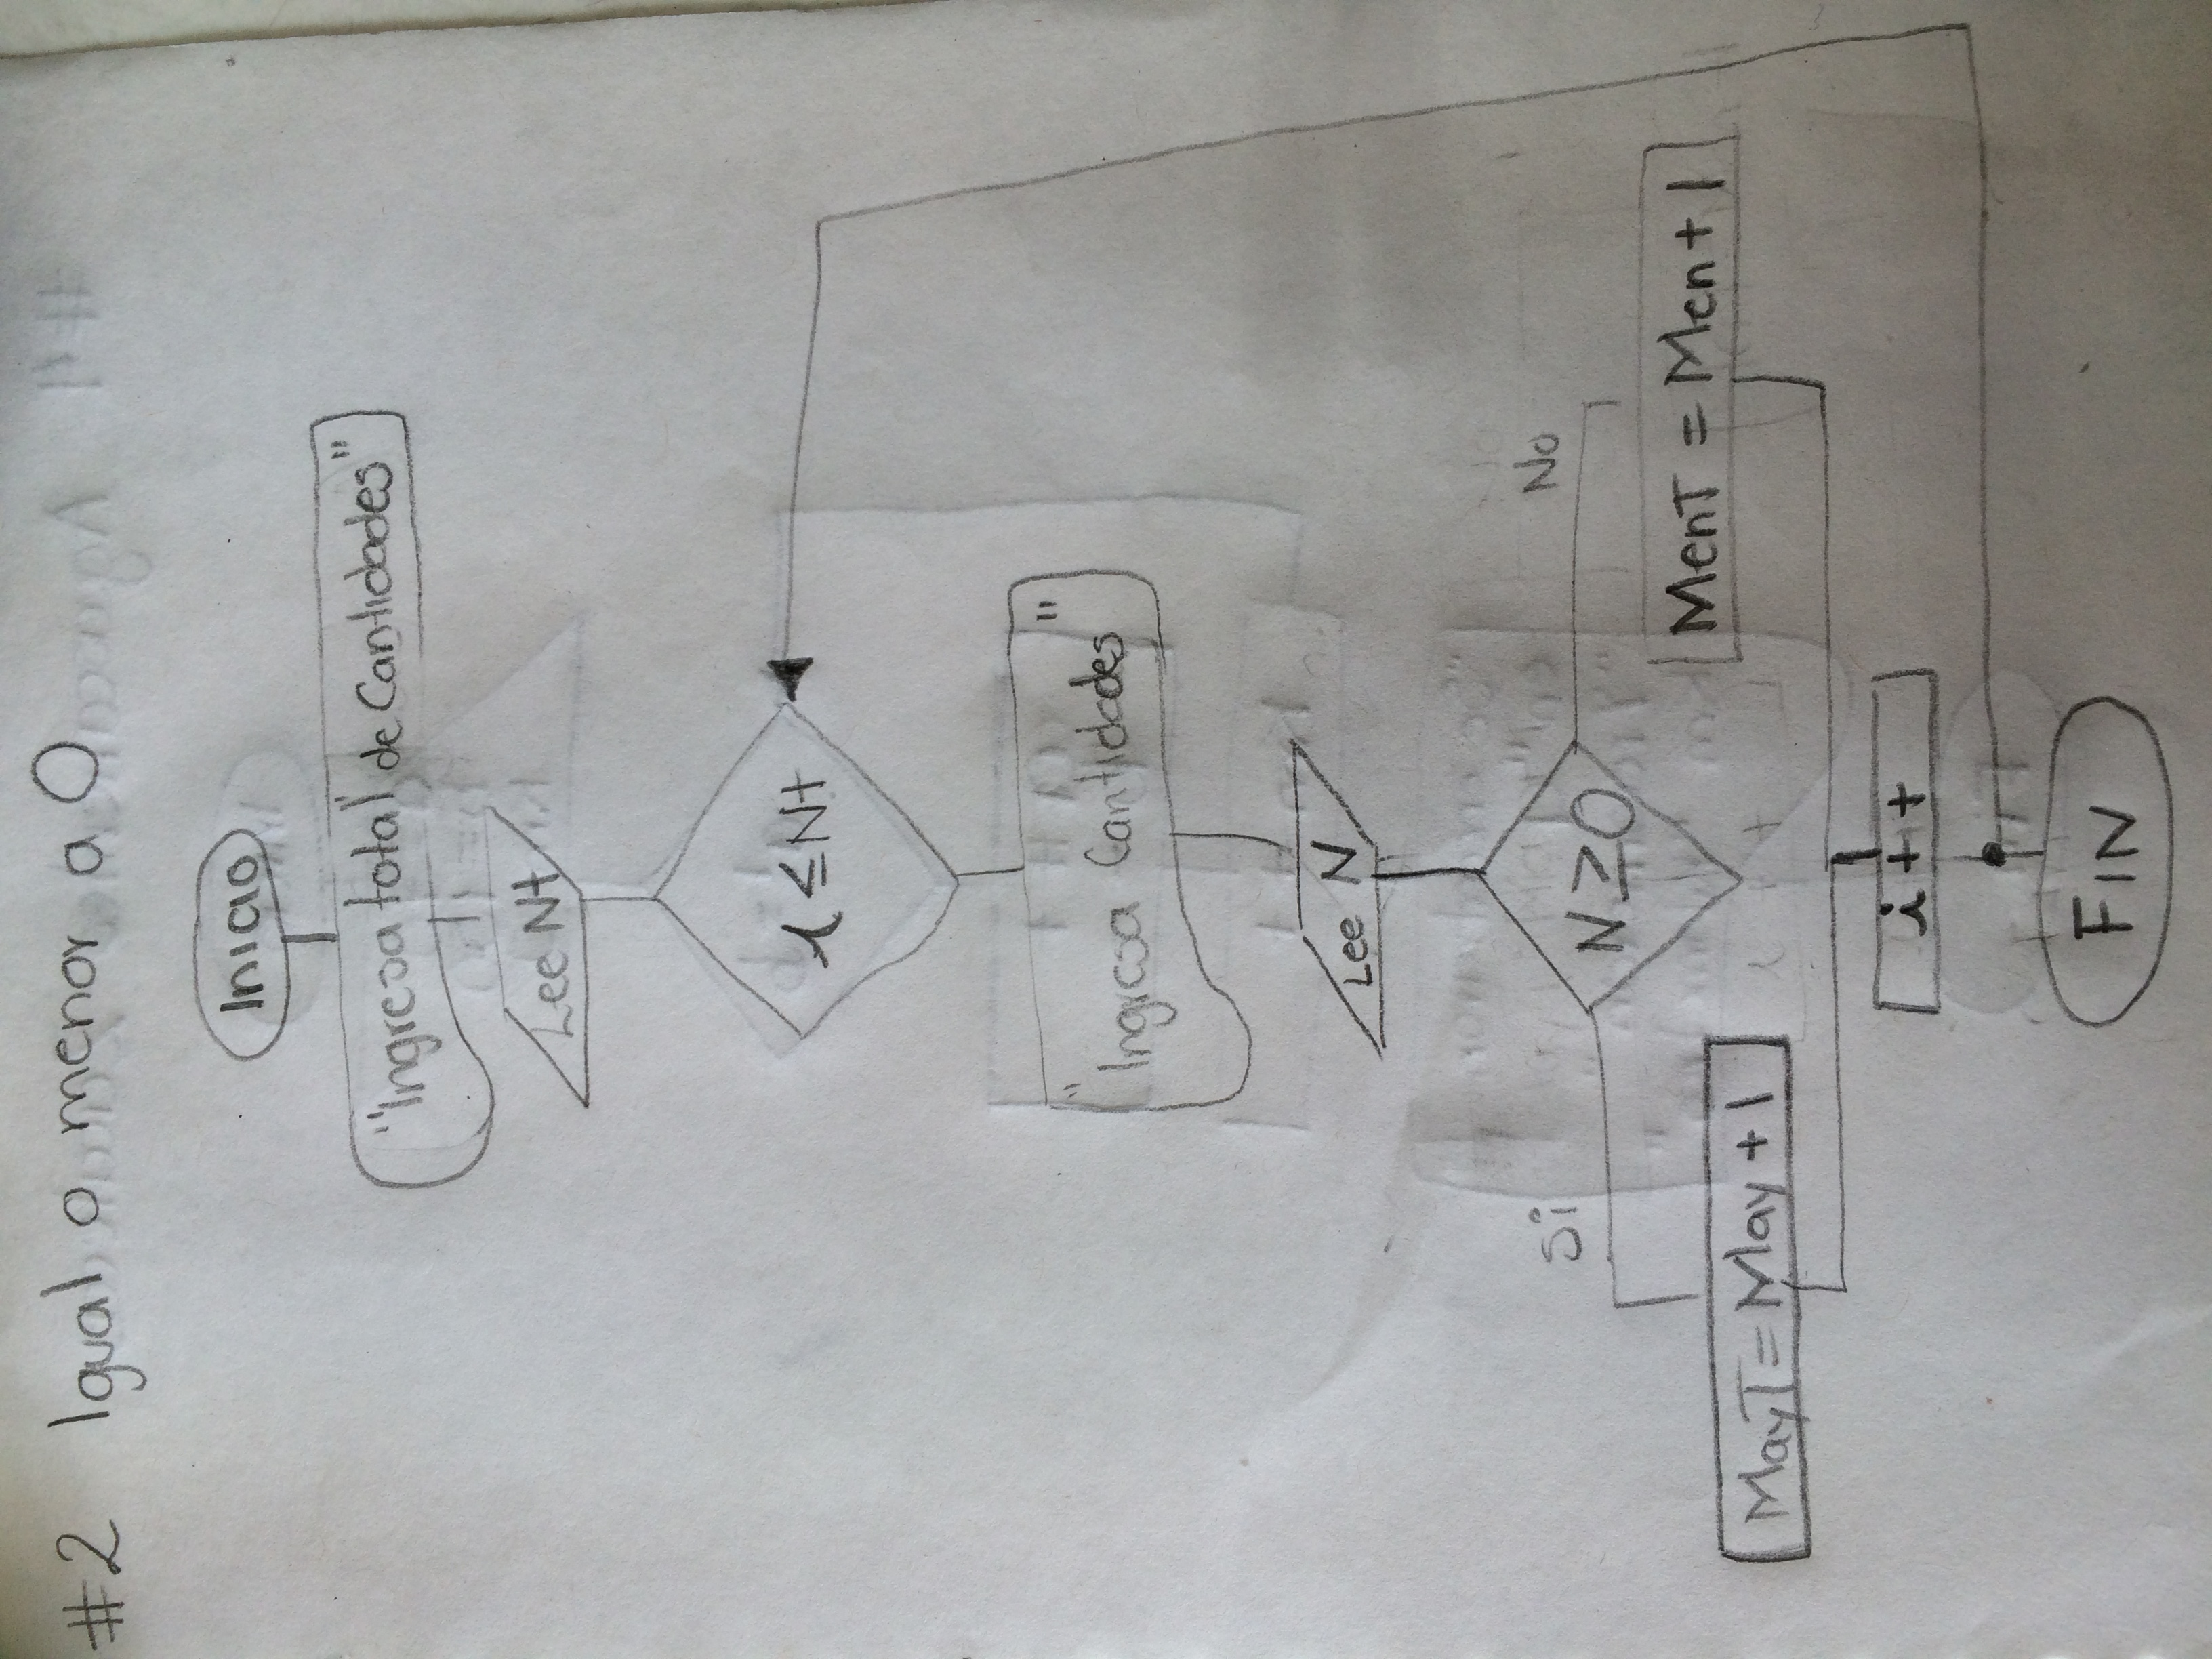 #2 Igual o menor a 0
Inicio
"Ingresa total de Cantidades"
Lee Nt
i ≤ Nt
"Ingresa Cantidades"
Lee N
Si
No
N ≥ 0
MenT = Men + 1
MayT = May + 1
i + +
FIN